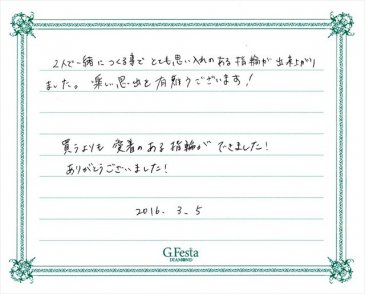 2人で一緒につくる事でとても思い入れのある指輪が出来上がり
ました。楽しい思出を有難うございます!
買うよりも愛着のある指輪ができました!
ありがとうございました!
2016. 3. 5
G.Festa
DIAMOND